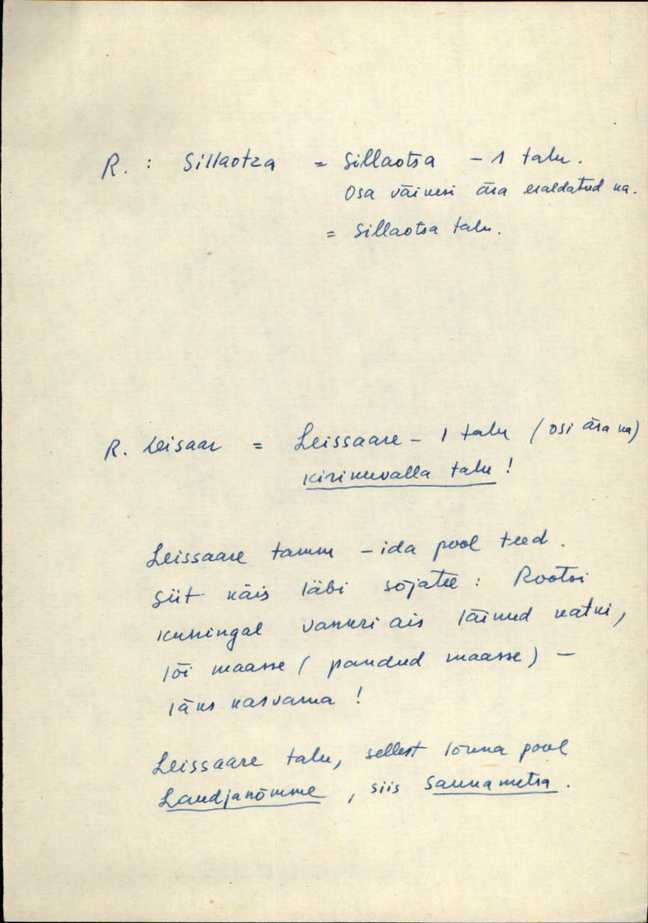 R. : Sillaotza = Sillaotsa - 1 talu.
Osa väinesi ära eraldatud ka.
= Sillaotsa talu.
R. leisaar = Leissaare - 1 talu (osi ära ka)
kirikuvalla talu!
Leissaare tamm - ida pool teed.
Siit käis läbi sõjatee: Rootsi
kuningal vankri ais läinud katki,
lõi maasse (pandud maasse) -
läks kasvama!
Leissaare talu, sellest lõuna pool
Laudjanõmme, siis Saunametsa.